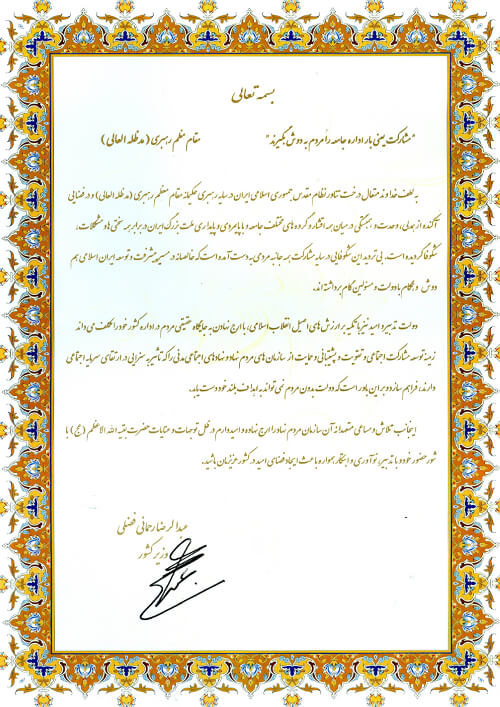 بسمه تعالی
"مشارکت یعنی بار اداره جامعه را مردم به دوش بگیرند" مقام معظم رهبری (مدظله العالی)
به لطف خداوند متعال درخت تناور نظام مقدس جمهوری اسلامی ایران در سایه رهبری حکیمانه مقام معظم رهبری (مدظله العالی) و در فضایی
آکنده از همدلی، وحدت و همبستگی در میان همه اقشار و گروه های مختلف جامعه و با پایمردی و پایداری ملت بزرگ ایران در برابر همه سختی ها و مشکلات،
شکوفا گردیده است. بی تردید این شکوفایی در سایه مشارکت همه جانبه مردمی به دست آمده است که خالصانه در مسیر پیشرفت و توسعه ایران اسلامی هم
دوش و همگام با دولت و مسئولین گام برداشته اند.
دولت تدبیر و امید نیز با تکیه بر ارزش های اصیل انقلاب اسلامی، با ارج نهادن به جایگاه حقیقی مردم در اداره کشور خود را مکلف می داند
زمینه توسعه مشارکت اجتماعی و تقویت و پشتیبانی و حمایت از سازمان های مردم نهاد و نهادهای اجتماعی مدنی را که تأثیر به سزایی در ارتقای سرمایه اجتماعی
دارند، فراهم سازد و بر این باور است که دولت بدون مردم نمی تواند به اهداف بلند خود دست یابد.
اینجانب تلاش و مساعی متعهدانه آن سازمان مردم نهاد را ارج نهاده و امیدوارم در ظل توجهات و عنایات حضرت بقیه الله الاعظم (عج) با
شور حضور خود و با تدبیر، نوآوری و ابتکار همواره باعث ایجاد فضای امید در کشور عزیزمان باشید.
عبدالرضا رحمانی فضلی
وزیر کشور